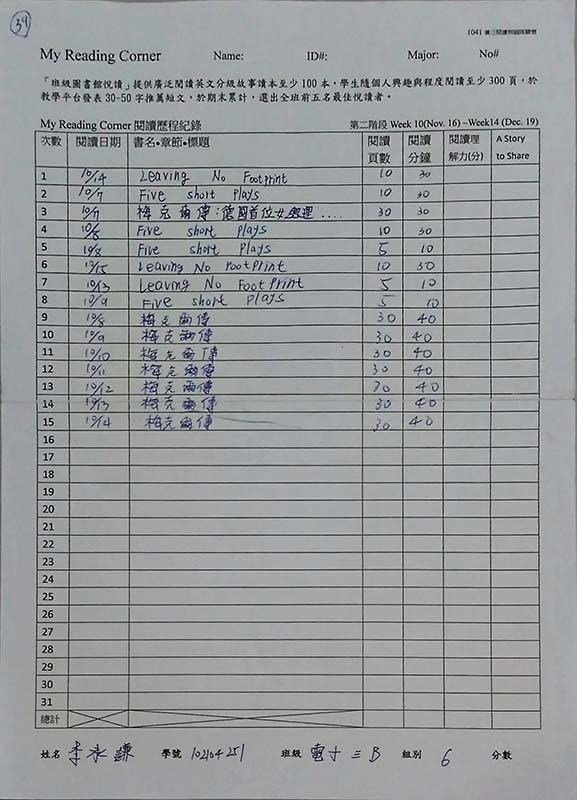 34
1041 廣三閱讀
My Reading Corner Name: ID#: Major: No#
「班級圖書館悅讀」提供廣泛閱讀英文分級故事讀本至少100本，學生隨個人興趣與程度閱讀至少300頁，於
教學平台發表30-50字推薦短文，於期末累計，選出全班前五名最佳悅讀者。
My Reading Corner 閱讀歷程紀錄 第二階段 Week 10(Nov. 16) ~Week14 (Dec. 19)
次數 閱讀日期 書名•章節•標題 閱讀頁數 閱讀分鐘 閱讀理解力(分) A Story to Share
1 10/14 Leaving No Footprint 10 30
2 10/7 Five short plays 10 30
3 10/7 梅克爾傳:德國首位女總理.... 30 30
4 10/8 Five short plays 10 30
5 10/8 Five short plays 5 10
6 10/15 Leaving No Footprint 10 30
7 10/13 Leaving No Footprint 5 10
8 10/9 Five short plays 5 10
9 10/8 梅克爾傳 30 40
10 10/9 梅克爾傳 30 40
11 10/10 梅克爾傳 30 40
12 10/11 梅克爾傳 30 40
13 10/12 梅克爾傳 30 40
14 10/13 梅克爾傳 30 40
15 10/14 梅克爾傳 30 40
16
17
18
19
20
21
22
23
24
25
26
27
28
29
30
31
總計
姓名 李永謙 學號 102104251 班級 電十三B 組別 6 分數